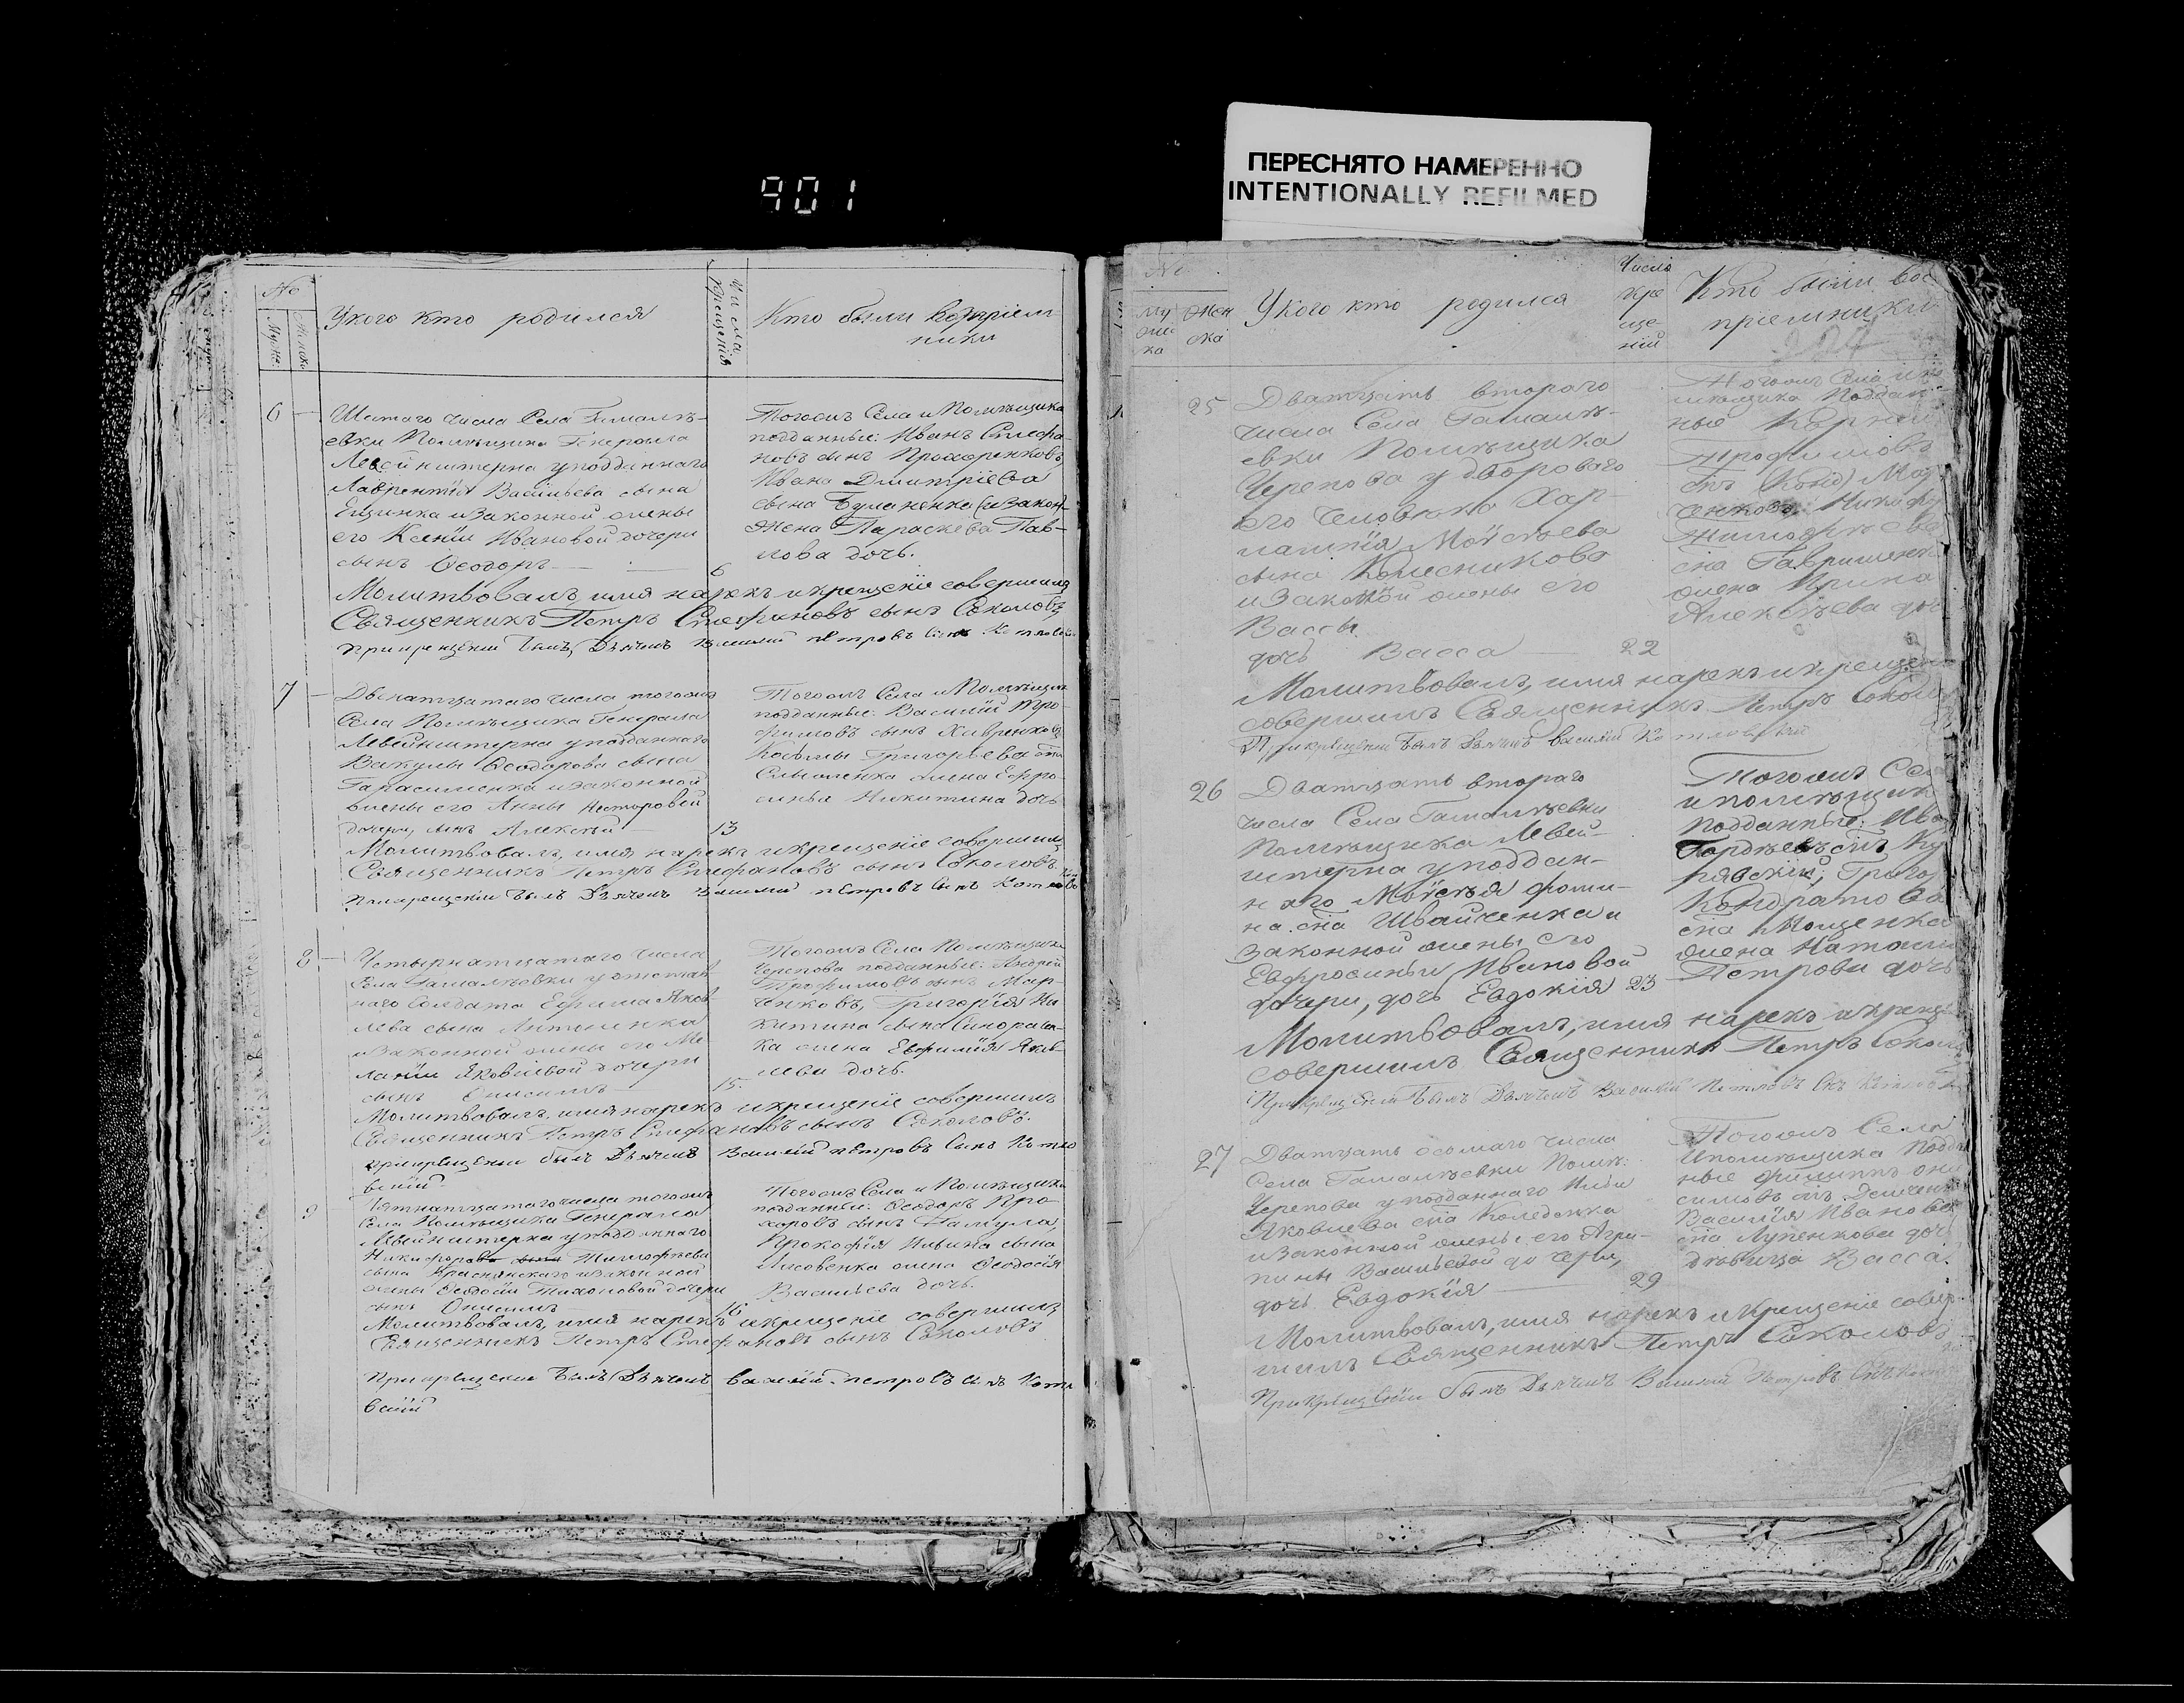 901
ПЕРЕСНЯТО НАМЕРЕННО
INTENTIONALLY REFILMED
№
Муж:
Женск:
У кого кто родился
Числа крещенія
Кто были воспріем-
ники
6
Шестаго числа Села Гамалѣ-
евки Помѣщика Генерала
Левейнштерна уподданнаго
Лаврентія Васильева сына
изаконной жены
его Ксеніи Ивановой дочери
сынъ Ѳеодоръ
6
Тогожъ Села и Помѣщика
подданные: Иванъ Стефа-
новъ сынъ Прохоренковъ,
Ивана Димитріева
сына Буланенка (изакон-
жена Параскева Пав-
лова дочь.
Молитвовалъ, имя нарекъ икрещеніе совершилъ
Священникъ Петръ Стефановъ сынъ Соколовъ
Прикрещеніи былъ Дьячекъ Василій Петровъ сынъ
7
Двенатцатаго числа тогожъ
Села Помѣщика Генерала
Левейнштерна уподданнаго
Вакулы Ѳеодорова сына
Гарасименка изаконной
жены его Анны Несторовой
дочери, сынъ Алексѣй
13
Тогожъ Села и Помѣщика
подданные: Василій Тро-
фимовъ сынъ Хивренковъ,
Козьмы Григорьева сна
Смоленка жена Ефро-
синья Никитина дочь
Молитвовалъ, имя нарекъ икрещеніе совершилъ
Священникъ Петръ Стефановъ сынъ Соколовъ
Прикрещеніи былъ Дьячекъ Василій Петровъ сынъ
8
Четырнатцатаго числа
Села Гамалѣевки уотстав-
наго Солдата Ефима Яков-
лева сына Антоненка
изаконной жены его Ме-
ланіи Яковлевой дочери
сынъ Онисимъ
15.
Тогожъ Села Помѣщика
Черепова подданные: Андрей
Трофимовъ сынъ Мар-
ченковъ, Григорія Ни-
китина сына
ка жена Евфимія Яков-
лева дочь.
Молитвовалъ, имя нарекъ икрещеніе совершилъ
Священникъ Петръ Стефановъ сынъ Соколовъ.
Прикрещеніи былъ Дьячекъ Василій Петровъ сынъ Котло
вскій
9
Пятнатцатаго числа тогожъ
Села Помѣщика Генерала
Левейнштерна уподданнаго
Никифора Тимофѣева
сына Краснянскаго изаконной
жены Ѳеодосіи Тихоновой дочери
сынъ Онисимъ
16
Тогожъ Села и Помѣщика
подданные: Ѳеодоръ Про-
хоровъ сынъ
Прокофія Ильина сына
Лисовенка жена Ѳеодосія
Васильева дочь.
Молитвовалъ, имя нарекъ икрещеніе совершилъ
Священникъ Петръ Стефановъ сынъ Соколовъ
Прикрещеніи былъ Дьячекъ Василій Петровъ сынъ Котло
вскій
№
Му
жес
ка
Жен
ска
У кого кто родился
Число
кре
ще-
ній
Кто были вос
пріемники
25
Дватцать втораго
числа Села Гамалѣ-
евки Помѣщика
Черепова у двороваго
его человека Хар-
лампія Моѵсѣева
сына Колесникова
изаконой жены его
Вассы
дочь Васса
22
Тогожъ Села
мѣщика Поддан-
ные
Трофимовъ
снъ
ченковъ, Никифо
Тимофѣева
сна Гавриленка
жена Ирина
Алексѣева доч
Молитвовалъ, имя нарекъ икрещеніе
совершилъ Священникъ Петръ Соколо
Прикрещеніи былъ Дьячекъ Василій Котловскій
26
Дватцать втораго
числа Села Гамалѣевки
Помѣщика Левей-
штерна уподдан-
наго Моѵсѣя Фоми-
на сна Швайченка и
законной жены его
Евфросиньи Ивановой
дочери, дочь Евдокія
23
Тогожъ Сел
ипомѣщик
подданные: Ива
Гордѣевъ снъ Ку
Григо
Кондратова
сна Мощенка
жена Наталі
Петрова дочь
Молитвовалъ, имя нарекъ икрещ
совершилъ Священникъ Петръ Сокол
Прикрещеніи былъ Дьячекъ Василій Петровъ снъ
27
Дватцать осьмаго числа
Села Гамалѣевки Помѣ:
Черепова уподданнаго Ильи
Яковлева сна
изаконной жены его Агри-
пины Васильевой дочери,
дочь Евдокія
29
Тогожъ Села
Ипомѣщика Подда
ные Филиппъ Они
симовъ снъ Демченк
Василія Иванова
сна Лупенкова доч
дѣвица Васса.
Молитвовалъ, имя нарекъ икрещеніе совер-
шилъ Священникъ Петръ Соколовъ
Прикрещеніи былъ Дьячекъ Василій Петровъ снъ